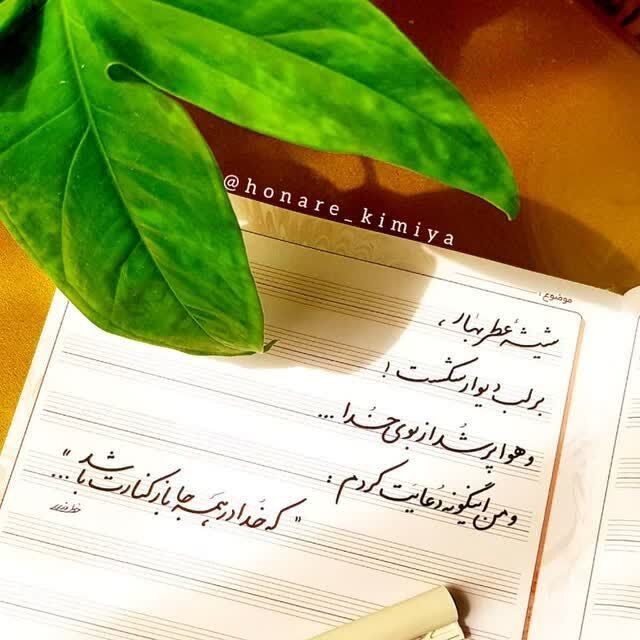 @honare_kimiya
موضوع :
شیشهٔ عطر بهار ،
بر لب دیوار شکست !
و هوا پر شد از بوی خدا ...
و من اینگونه دعایت کردم :
" که خدا در همه جا باز کنارت باشد "...